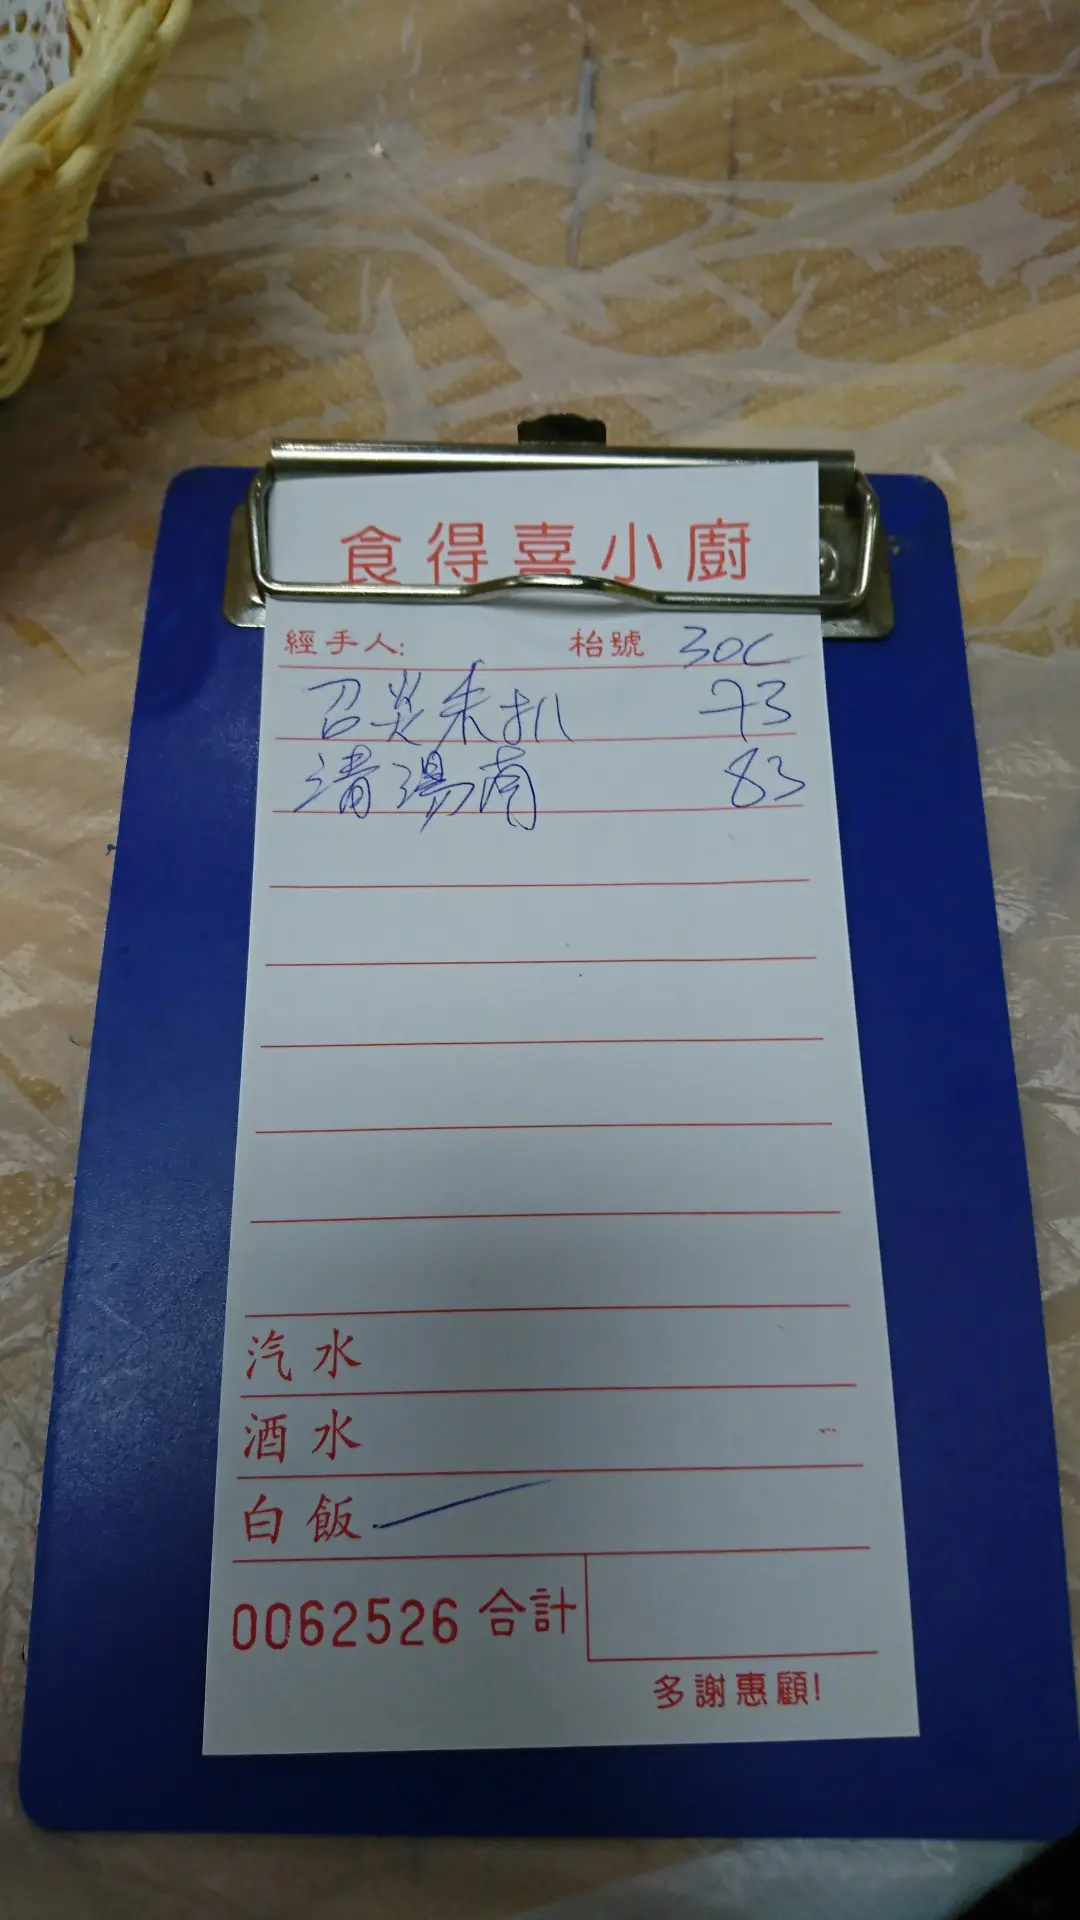 食得喜小廚
經手人: 枱號 30C
召炎朱扒 73
清湯南 83
汽水
酒水
白飯
0062526 合計
多謝惠顧!